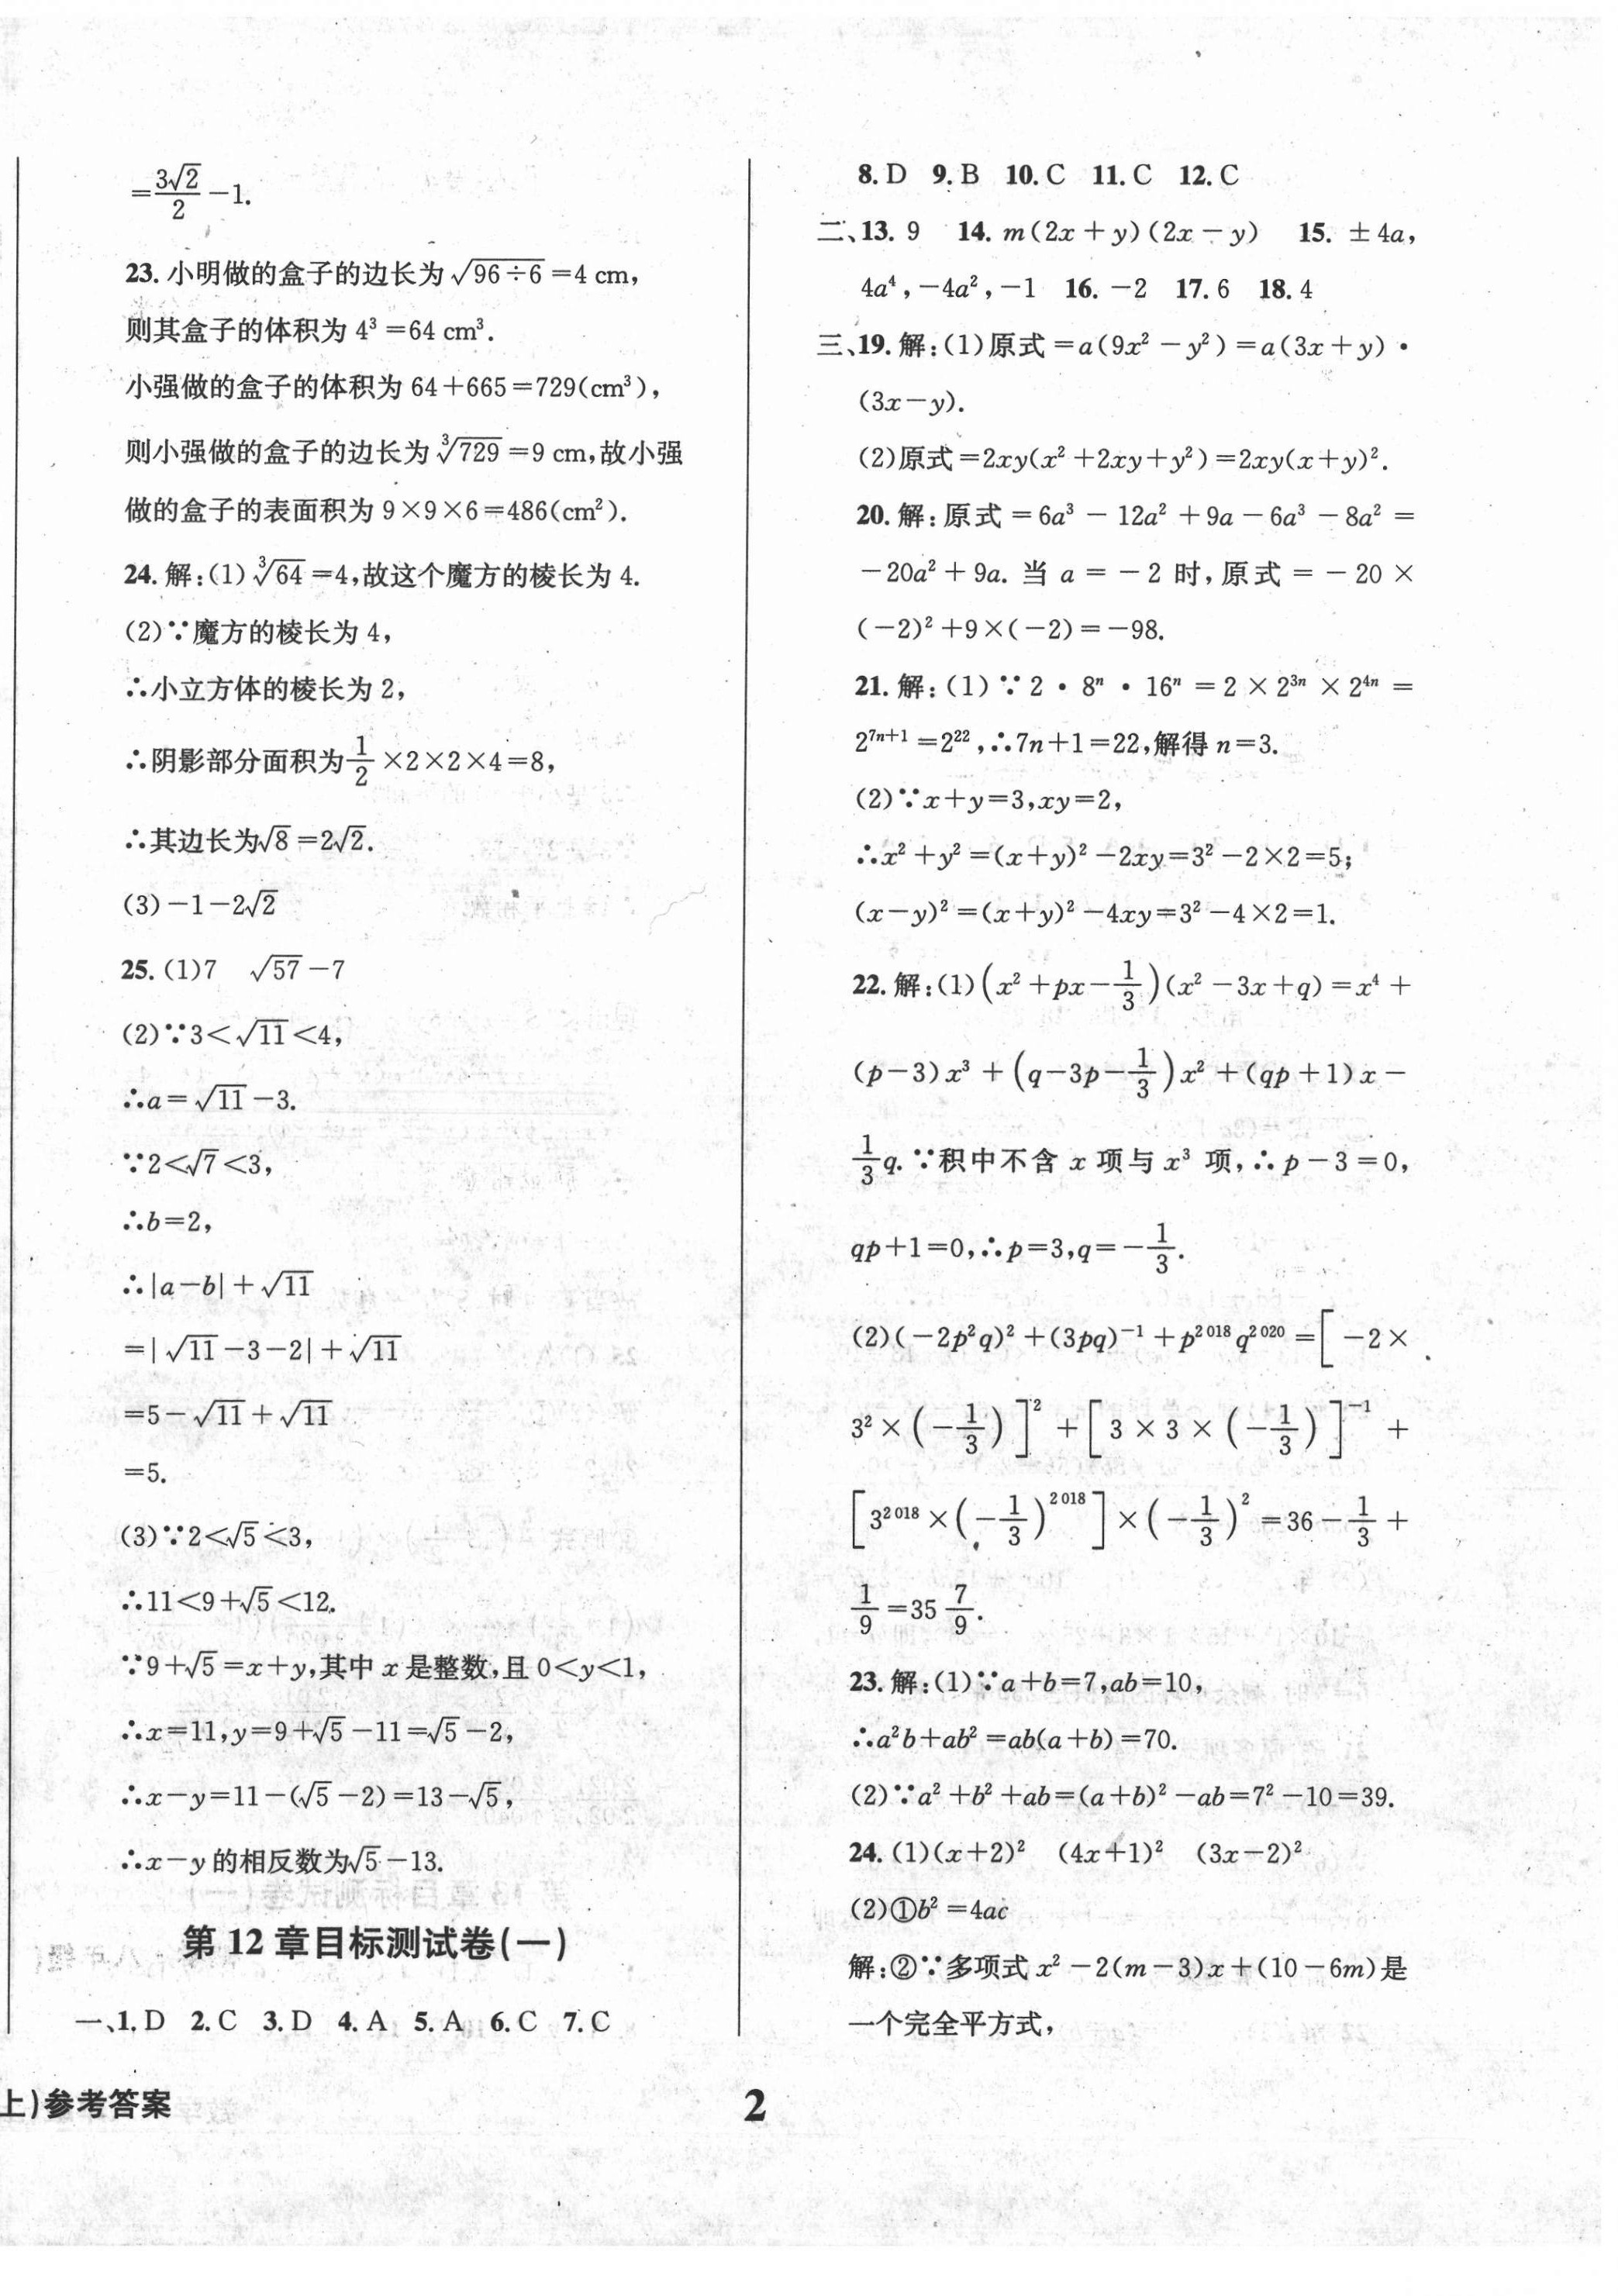 =3√2/2-1.
23. 小明做的盒子的边长为√(96÷6)=4 cm,
则其盒子的体积为 4³=64 cm³.
小强做的盒子的体积为 64+665=729(cm³),
则小强做的盒子的边长为³√729=9 cm,故小强
做的盒子的表面积为 9×9×6=486(cm²).
24. 解:(1)³√64=4,故这个魔方的棱长为 4.
(2)∵魔方的棱长为 4,
∴小立方体的棱长为 2,
∴阴影部分面积为1/2×2×2×4=8,
∴其边长为√8=2√2.
(3)-1-2√2
25. (1)7 √57-7
(2)∵3<√11<4,
∴a=√11-3.
∵2<√7<3,
∴b=2,
∴|a-b|+√11
=|√11-3-2|+√11
=5-√11+√11
=5.
(3)∵2<√5<3,
∴11<9+√5<12.
∵9+√5=x+y,其中 x 是整数,且 0<y<1,
∴x=11,y=9+√5-11=√5-2,
∴x-y=11-(√5-2)=13-√5,
∴x-y 的相反数为√5-13.
第 12 章目标测试卷(一)
一、1. D 2. C 3. D 4. A 5. A 6. C 7. C
8. D 9. B 10. C 11. C 12. C
二、13. 9 14. m(2x+y)(2x-y) 15. ±4a,
4a⁴,-4a²,-1 16. -2 17. 6 18. 4
三、19. 解:(1)原式=a(9x²-y²)=a(3x+y)·
(3x-y).
(2)原式=2xy(x²+2xy+y²)=2xy(x+y)².
20. 解:原式=6a³-12a²+9a-6a³-8a²=
-20a²+9a. 当 a=-2 时,原式=-20×
(-2)²+9×(-2)=-98.
21. 解:(1)∵2·8ⁿ·16ⁿ=2×2³ⁿ×2⁴ⁿ=
2⁷ⁿ⁺¹=2²²,∴7n+1=22,解得 n=3.
(2)∵x+y=3,xy=2,
∴x²+y²=(x+y)²-2xy=3²-2×2=5;
(x-y)²=(x+y)²-4xy=3²-4×2=1.
22. 解:(1)(x²+px-1/3)(x²-3x+q)=x⁴+
(p-3)x³+(q-3p-1/3)x²+(qp+1)x-
1/3q. ∵积中不含 x 项与 x³ 项,∴p-3=0,
qp+1=0,∴p=3,q=-1/3.
(2)(-2p²q)²+(3pq)⁻¹+p²⁰¹⁸q²⁰²⁰=[-2×
3²×(-1/3)]²+[3×3×(-1/3)]⁻¹+
[3²⁰¹⁸×(-1/3)²⁰¹⁸]×(-1/3)²=36-1/3+
1/9=35 7/9.
23. 解:(1)∵a+b=7,ab=10,
∴a²b+ab²=ab(a+b)=70.
(2)∵a²+b²+ab=(a+b)²-ab=7²-10=39.
24. (1)(x+2)² (4x+1)² (3x-2)²
(2)①b²=4ac
解:②∵多项式 x²-2(m-3)x+(10-6m)是
一个完全平方式,
上)参考答案
2